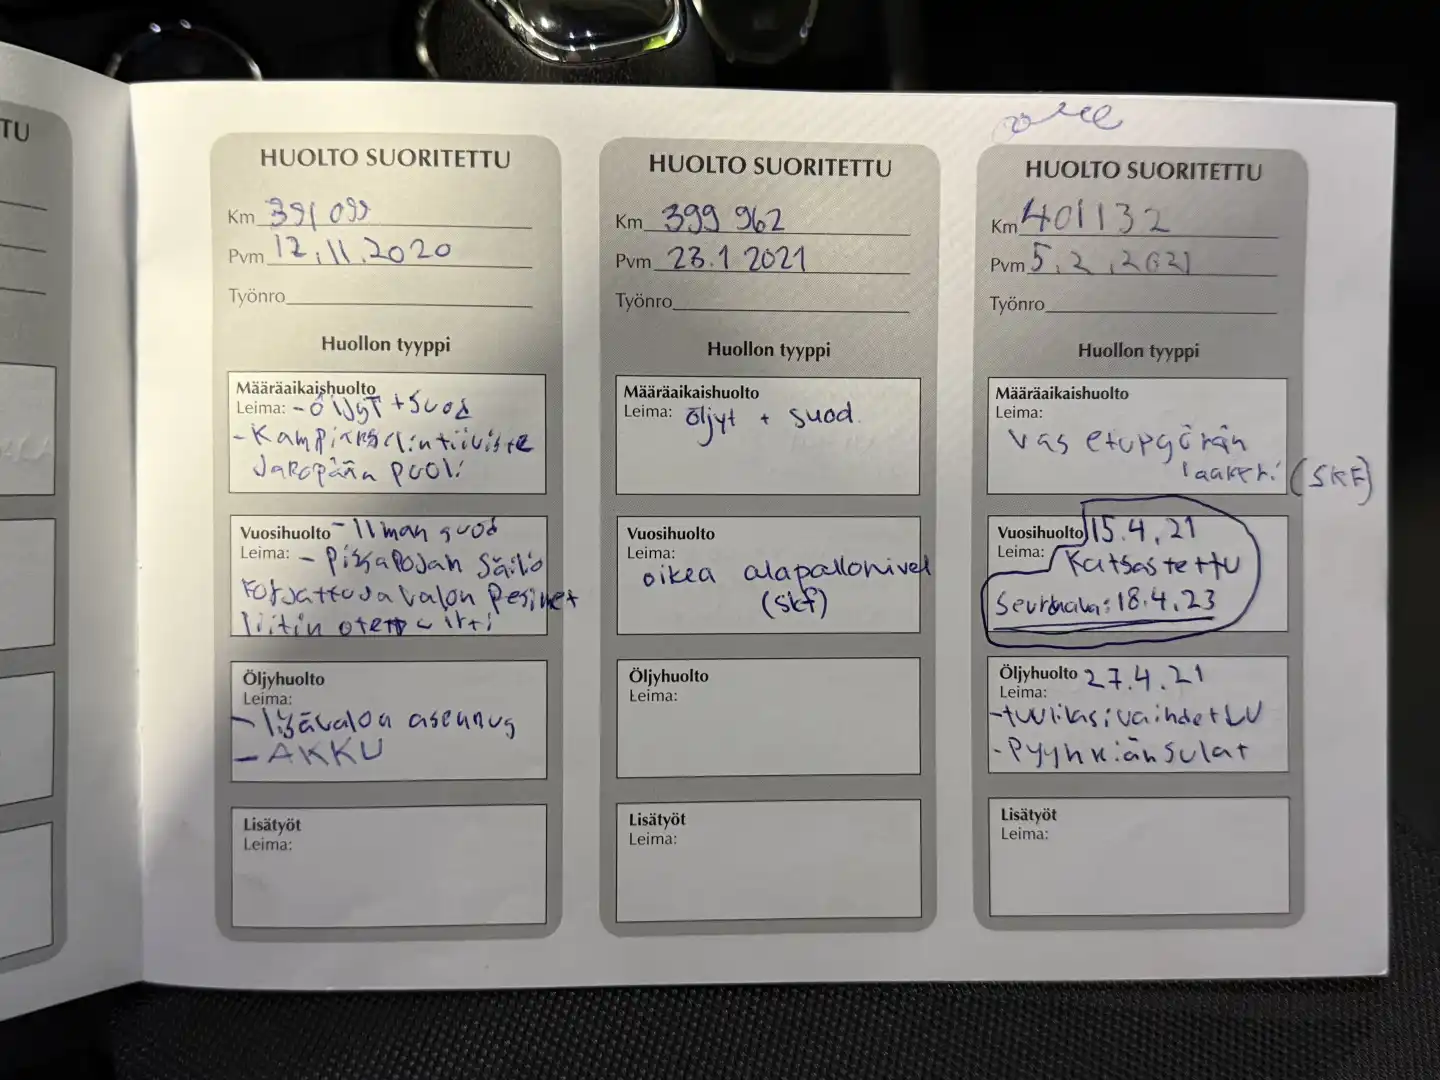 TU
HUOLTO SUORITETTU
Km 391 099
Pvm 12.11.2020
Työnro
Huollon tyyppi
Määräaikaishuolto
Leima: - öljyt + suod
- Kampiakselintiiviste
Jakopään puoli
Vuosihuolto - Ilman suod
Leima: - Pissapojan säiliö
Korjattu ja valon pesimet
liitin otettu irti
Öljyhuolto
Leima:
- lisävalon asennus
- AKKU
Lisätyöt
Leima:
HUOLTO SUORITETTU
Km 399 962
Pvm 23.1 2021
Työnro
Huollon tyyppi
Määräaikaishuolto
Leima: öljyt + suod.
Vuosihuolto
Leima:
oikea alapallonivel
(skf)
Öljyhuolto
Leima:
Lisätyöt
Leima:
HUOLTO SUORITETTU
Km 401132
Pvm 5.2.2021
Työnro
Huollon tyyppi
Määräaikaishuolto
Leima:
vas etupyörän
laakeri (SKF)
Vuosihuolto 15.4.21
Leima: Katsastettu
Seuraava: 18.4.23
Öljyhuolto 27.4.21
Leima:
- tuulilasi vaihdettu
- Pyyhkiänsulat
Lisätyöt
Leima: